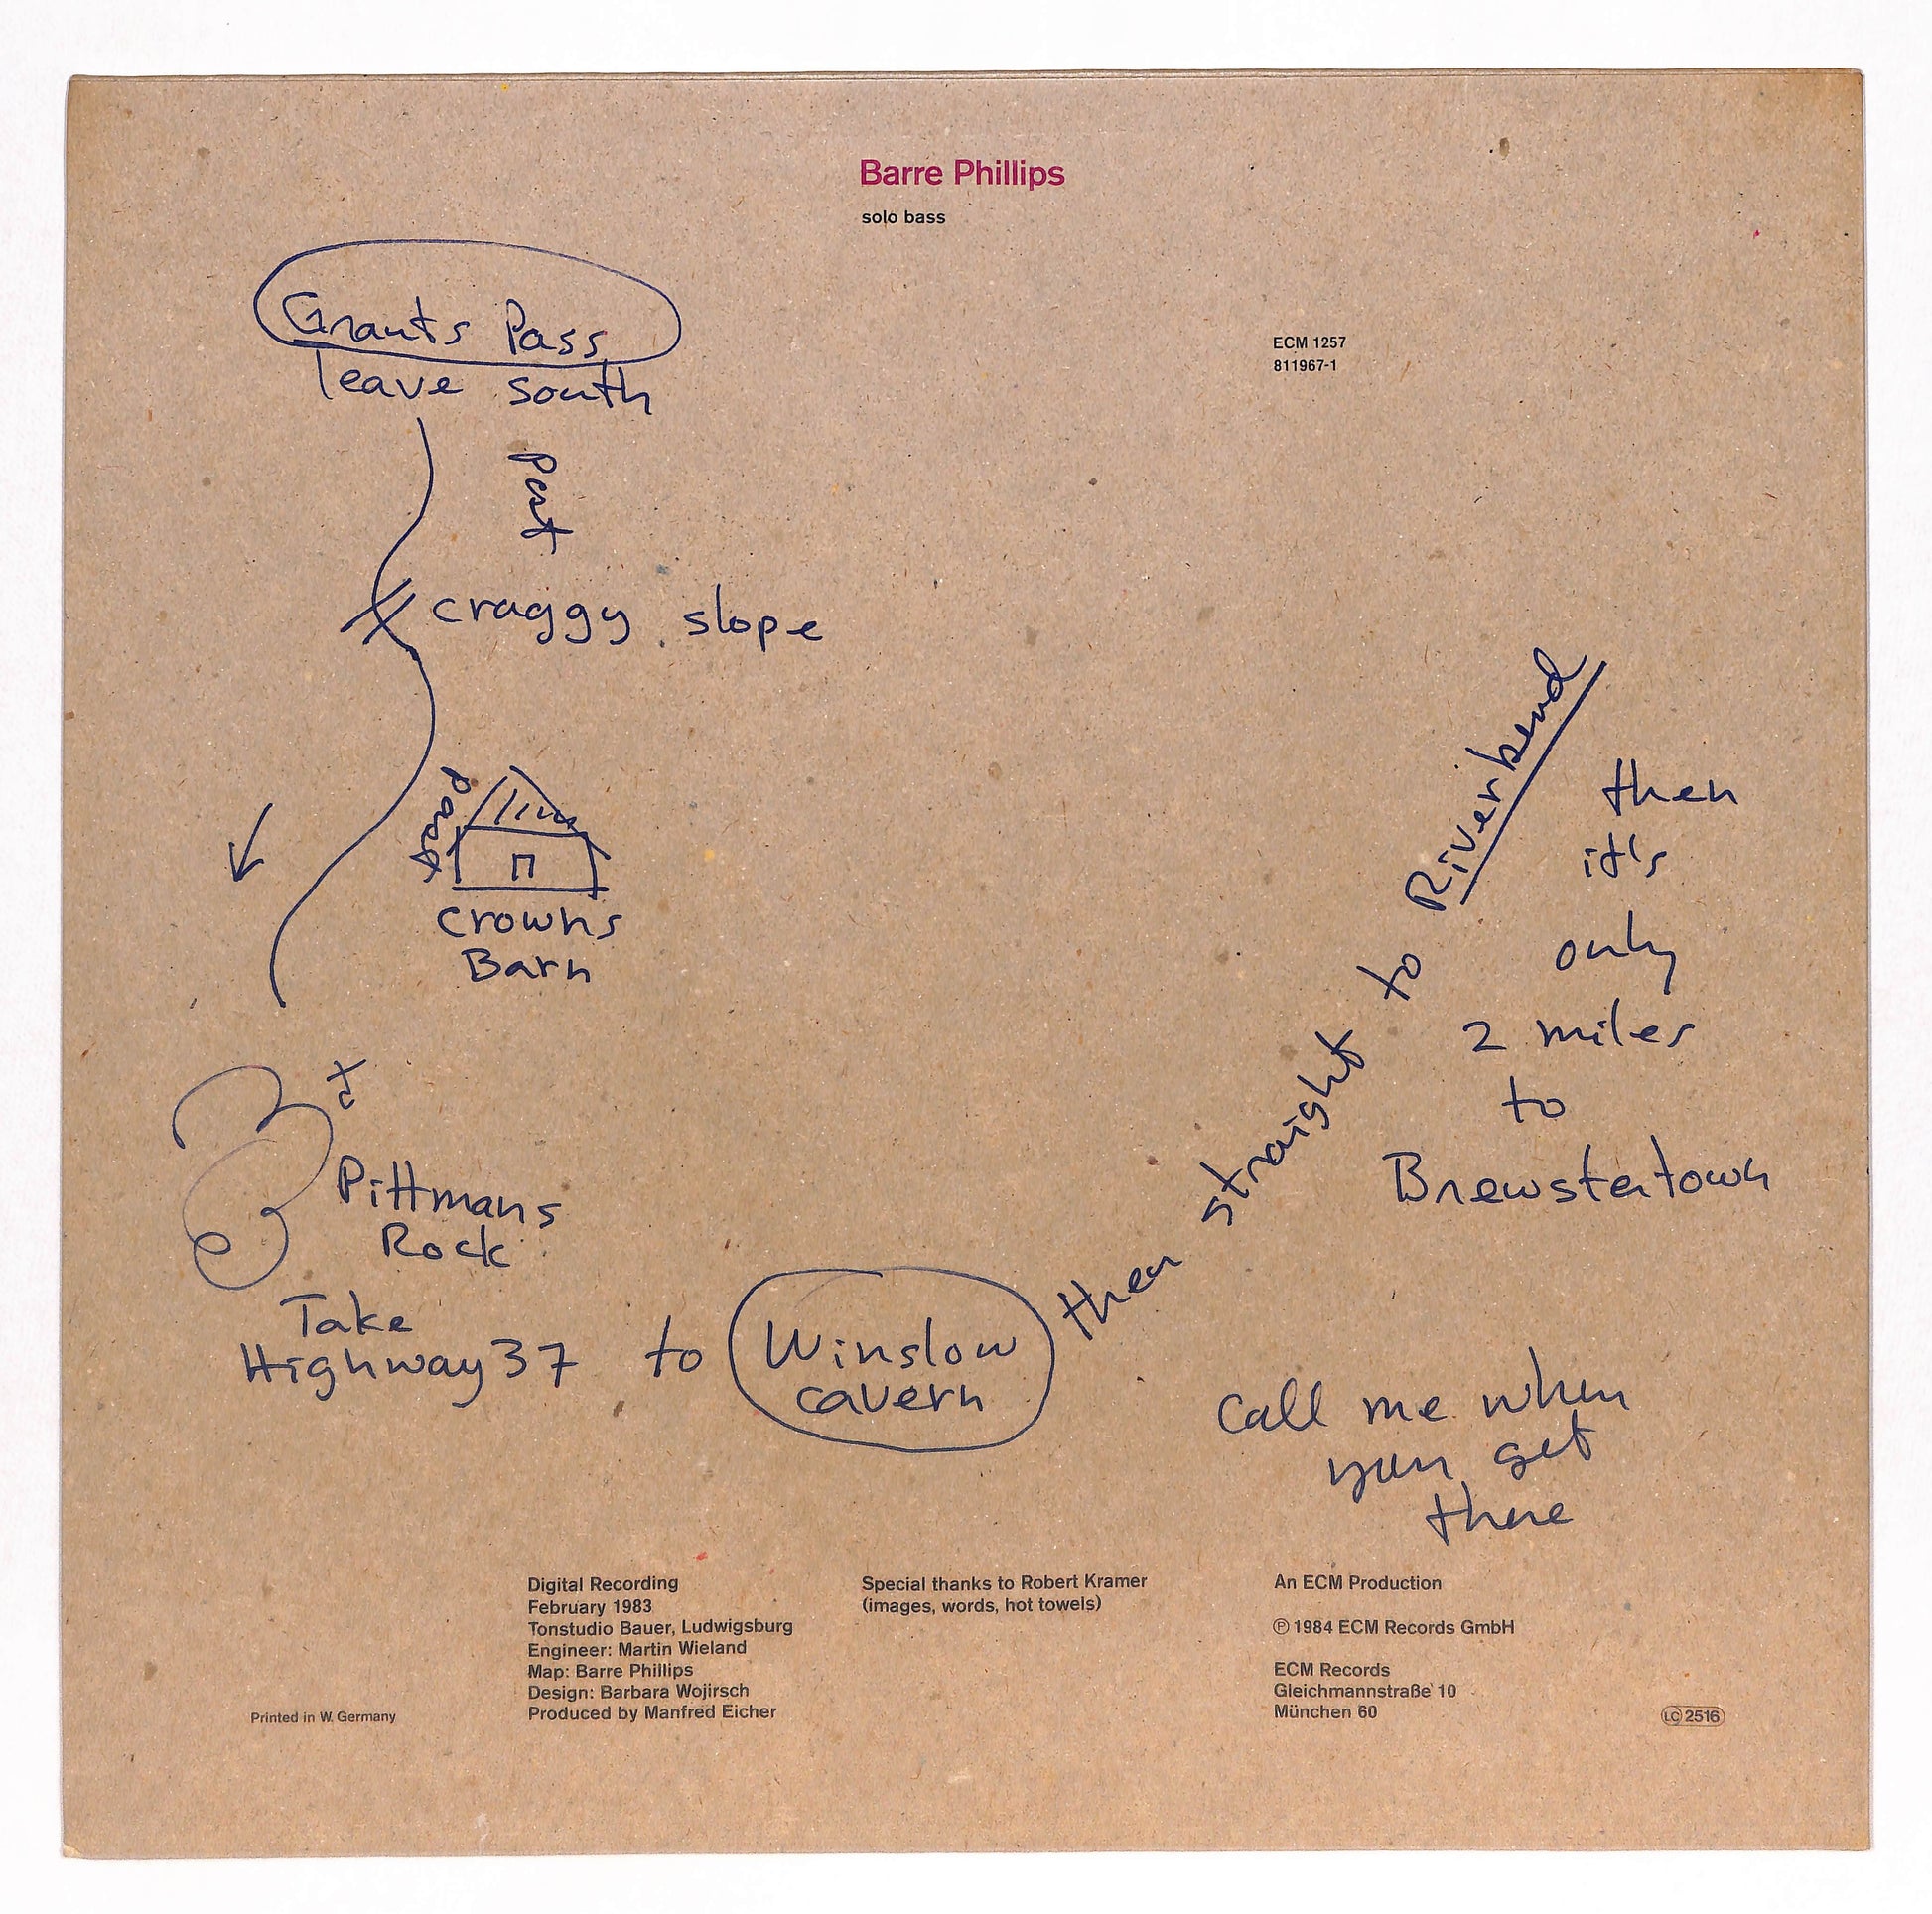 Barre Phillips
solo bass
ECM 1257
811967-1
Grants Pass
leave south
past
craggy slope
past
Crowns
Barn
at
Pittmans
Rock
Take
Highway 37 to Winslow
cavern
then straight to Riverbend
then
it's
only
2 miles
to
Brewstertown
Call me when
you get
there
Digital Recording
February 1983
Tonstudio Bauer, Ludwigsburg
Engineer: Martin Wieland
Map: Barre Phillips
Design: Barbara Wojirsch
Produced by Manfred Eicher
Special thanks to Robert Kramer
(images, words, hot towels)
An ECM Production
℗ 1984 ECM Records GmbH
ECM Records
Gleichmannstraße 10
München 60
Printed in W. Germany
LC 2516